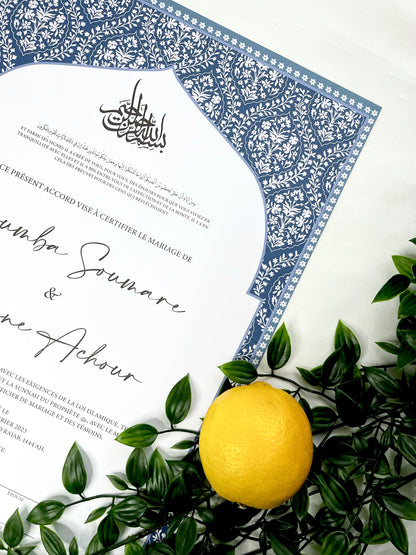 بسم الله الرحمن الرحيم
ET PARMI SES SIGNES IL A CRÉÉ DE VOUS, POUR VOUS, DES ÉPOUSES POUR QUE VOUS VIVIEZ EN
TRANQUILLITÉ AVEC ELLES ET IL A MIS ENTRE VOUS DE L'AFFECTION ET DE LA BONTÉ. IL Y A EN
CELA DES PREUVES POUR DES GENS QUI RÉFLÉCHISSENT.
CE PRÉSENT ACCORD VISE À CERTIFIER LE MARIAGE DE
oumba Soumare
&
ne Achour
AVEC LES EXIGENCES DE LA LOI ISLAMIQUE,
ET LA SUNNAH DU PROPHÈTE ﷺ, AVEC LE
OFFICIER DE MARIAGE ET DES TÉMOINS.
LE
2023
RAJAB, 1444 AH.
EPOUSE